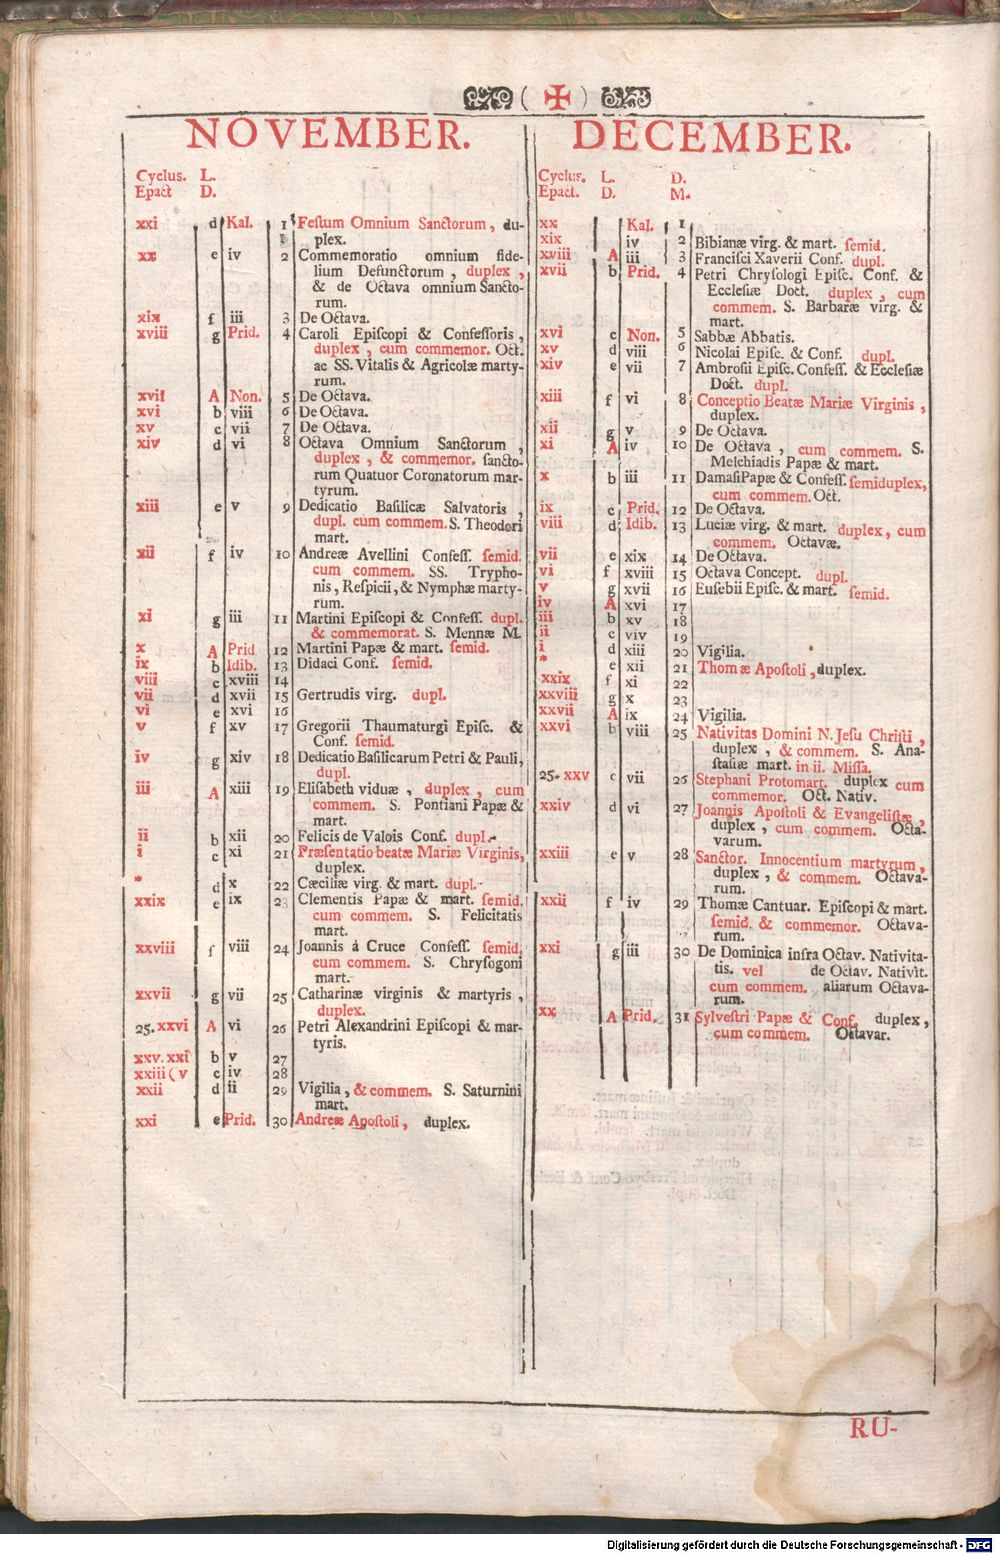 ( ✠ )
NOVEMBER.
Cyclus. L.
Epact D.
xxi d Kal. 1 Feſtum Omnium Sanctorum, du-
plex.
xx e iv 2 Commemoratio omnium fide-
lium Defunctorum, duplex,
& de Octava omnium Sancto-
rum.
xix f iii 3 De Octava.
xviii g Prid. 4 Caroli Epiſcopi & Confeſſoris,
duplex, cum commemor. Oct.
ac SS. Vitalis & Agricolæ marty-
rum.
xvii A Non. 5 De Octava.
xvi b viii 6 De Octava.
xv c vii 7 De Octava.
xiv d vi 8 Octava Omnium Sanctorum,
duplex, & commemor. ſancto-
rum Quatuor Coronatorum mar-
tyrum.
xiii e v 9 Dedicatio Baſilicæ Salvatoris,
dupl. cum commem. S. Theodori
mart.
xii f iv 10 Andreæ Avellini Confeſſ. ſemid.
cum commem. SS. Trypho-
nis, Reſpicii, & Nymphæ marty-
rum.
xi g iii 11 Martini Epiſcopi & Confeſſ. dupl.
& commemorat. S. Mennæ M.
x A Prid 12 Martini Papæ & mart. ſemid.
ix b Idib. 13 Didaci Conf. ſemid.
viii c xviii 14
vii d xvii 15 Gertrudis virg. dupl.
vi e xvi 16
v f xv 17 Gregorii Thaumaturgi Epiſc. &
Conf. ſemid.
iv g xiv 18 Dedicatio Baſilicarum Petri & Pauli,
dupl.
iii A xiii 19 Eliſabeth viduæ, duplex, cum
commem. S. Pontiani Papæ &
mart.
ii b xii 20 Felicis de Valois Conf. dupl.
i c xi 21 Præſentatio beatæ Mariæ Virginis,
duplex.
* d x 22 Cæciliæ virg. & mart. dupl.
xxix e ix 23 Clementis Papæ & mart. ſemid.
cum commem. S. Felicitatis
mart.
xxviii f viii 24 Joannis à Cruce Confeſſ. ſemid.
cum commem. S. Chryſogoni
mart.
xxvii g vii 25 Catharinæ virginis & martyris,
duplex.
25. xxvi A vi 26 Petri Alexandrini Epiſcopi & mar-
tyris.
xxv. xxi b v 27
xxiii ( v c iv 28
xxii d ii 29 Vigilia, & commem. S. Saturnini
mart.
xxi e Prid. 30 Andreæ Apoſtoli, duplex.
DECEMBER.
Cyclus. L. D.
Epact. D. M.
xx Kal. 1
xix iv 2 Bibianæ virg. & mart. ſemid.
xviii A iii 3 Franciſci Xaverii Conf. dupl.
xvii b Prid. 4 Petri Chryſologi Epiſc. Conf. &
Eccleſiæ Doct. duplex, cum
commem. S. Barbaræ virg. &
mart.
xvi c Non. 5 Sabbæ Abbatis.
xv d viii 6 Nicolai Epiſc. & Conf. dupl.
xiv e vii 7 Ambroſii Epiſc. Confeſſ. & Eccleſiæ
Doct. dupl.
xiii f vi 8 Conceptio Beatæ Mariæ Virginis,
duplex.
xii g v 9 De Octava.
xi A iv 10 De Octava, cum commem. S.
Melchiadis Papæ & mart.
x b iii 11 Damaſi Papæ & Confeſſ. ſemiduplex,
cum commem. Oct.
ix c Prid. 12 De Octava.
viii d Idib. 13 Luciæ virg. & mart. duplex, cum
commem. Octavæ.
vii e xix 14 De Octava.
vi f xviii 15 Octava Concept. dupl.
v g xvii 16 Euſebii Epiſc. & mart. ſemid.
iv A xvi 17
iii b xv 18
ii c viv 19
i d xiii 20 Vigilia.
* e xii 21 Thomæ Apoſtoli, duplex.
xxix f xi 22
xxviii g x 23
xxvii A ix 24 Vigilia.
xxvi b viii 25 Nativitas Domini N. Jeſu Chriſti,
duplex, & commem. S. Ana-
ſtaſiæ mart. in ii. Miſſa.
25. xxv c vii 26 Stephani Protomart. duplex cum
commemor. Oct. Nativ.
xxiv d vi 27 Joannis Apoſtoli & Evangeliſtæ,
duplex, cum commem. Octa-
varum.
xxiii e v 28 Sanctor. Innocentium martyrum,
duplex, & commem. Octava-
rum.
xxii f iv 29 Thomæ Cantuar. Epiſcopi & mart.
ſemid. & commemor. Octava-
rum.
xxi g iii 30 De Dominica infra Octav. Nativita-
tis. vel de Octav. Nativit.
cum commem. aliarum Octava-
rum.
xx A Prid. 31 Sylveſtri Papæ & Conf. duplex,
cum commem. Octavar.
RU-
Digitalisierung gefördert durch die Deutsche Forschungsgemeinschaft - DFG